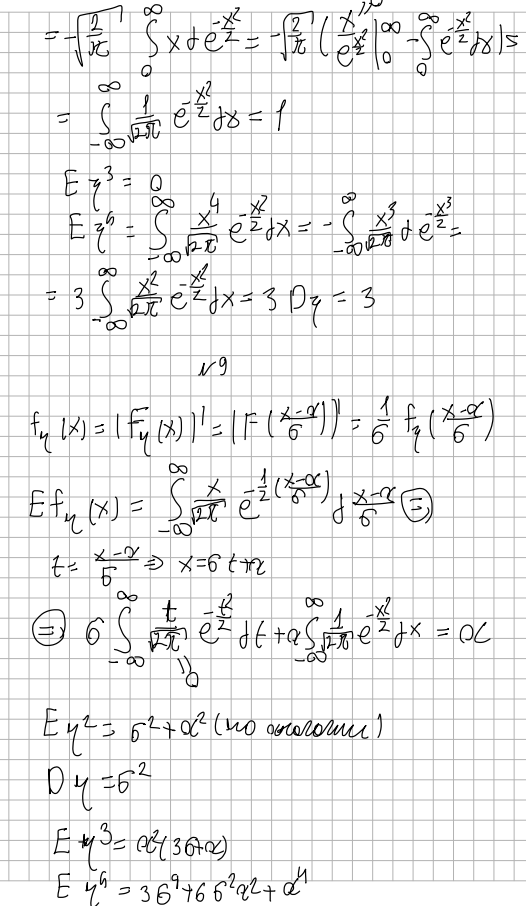 = -√(2/π) ∫₀^∞ x d e^(-x²/2) = -√(2/π) (x/e^(x²/2) |₀^∞ - ∫₀^∞ e^(-x²/2) dx) =
= ∫_(-∞)^∞ 1/√(2π) e^(-x²/2) dx = 1
E η³ = 0
E η⁴ = ∫_(-∞)^∞ x⁴/√(2π) e^(-x²/2) dx = - ∫_(-∞)^∞ x³/√(2π) d e^(-x²/2) =
= 3 ∫_(-∞)^∞ x²/√(2π) e^(-x²/2) dx = 3 Dη = 3
№9
f_η(x) = (F_η(x))' = (F((x-α)/σ))' = 1/σ f_η((x-α)/σ)
E f_η(x) = ∫_(-∞)^∞ x/√(2π) e^(-1/2 ((x-α)/σ)) d (x-α)/σ (=)
t = (x-α)/σ ⇒ x = σt + α
(=) σ ∫_(-∞)^∞ t/√(2π) e^(-t²/2) dt + α ∫_(-∞)^∞ 1/√(2π) e^(-x²/2) dx = α
0
E η² = σ² + α² (по аналогии)
D η = σ²
E η³ = α²(3σ+α)
E η⁴ = 3σ⁴ + 6σ²α² + α⁴